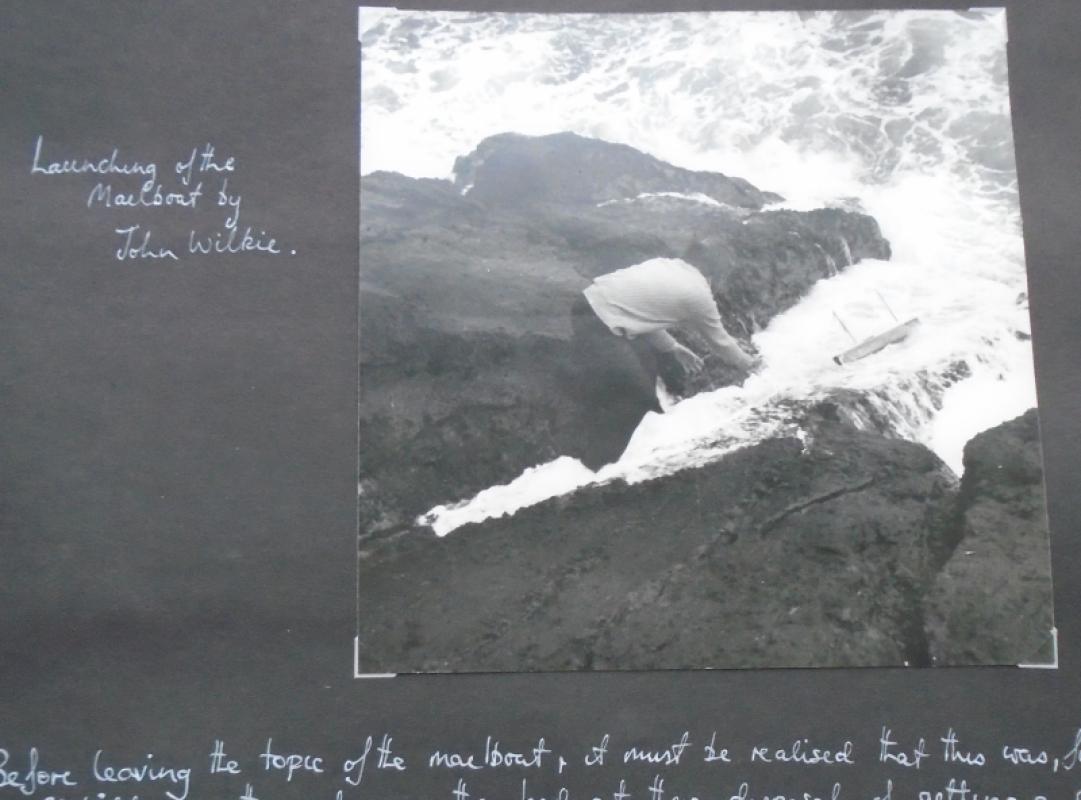 Launching of the
Mailboat by
John Wilkie.
Before leaving the topic of the mailboat, it must be realised that this was,
the disposal of getting a